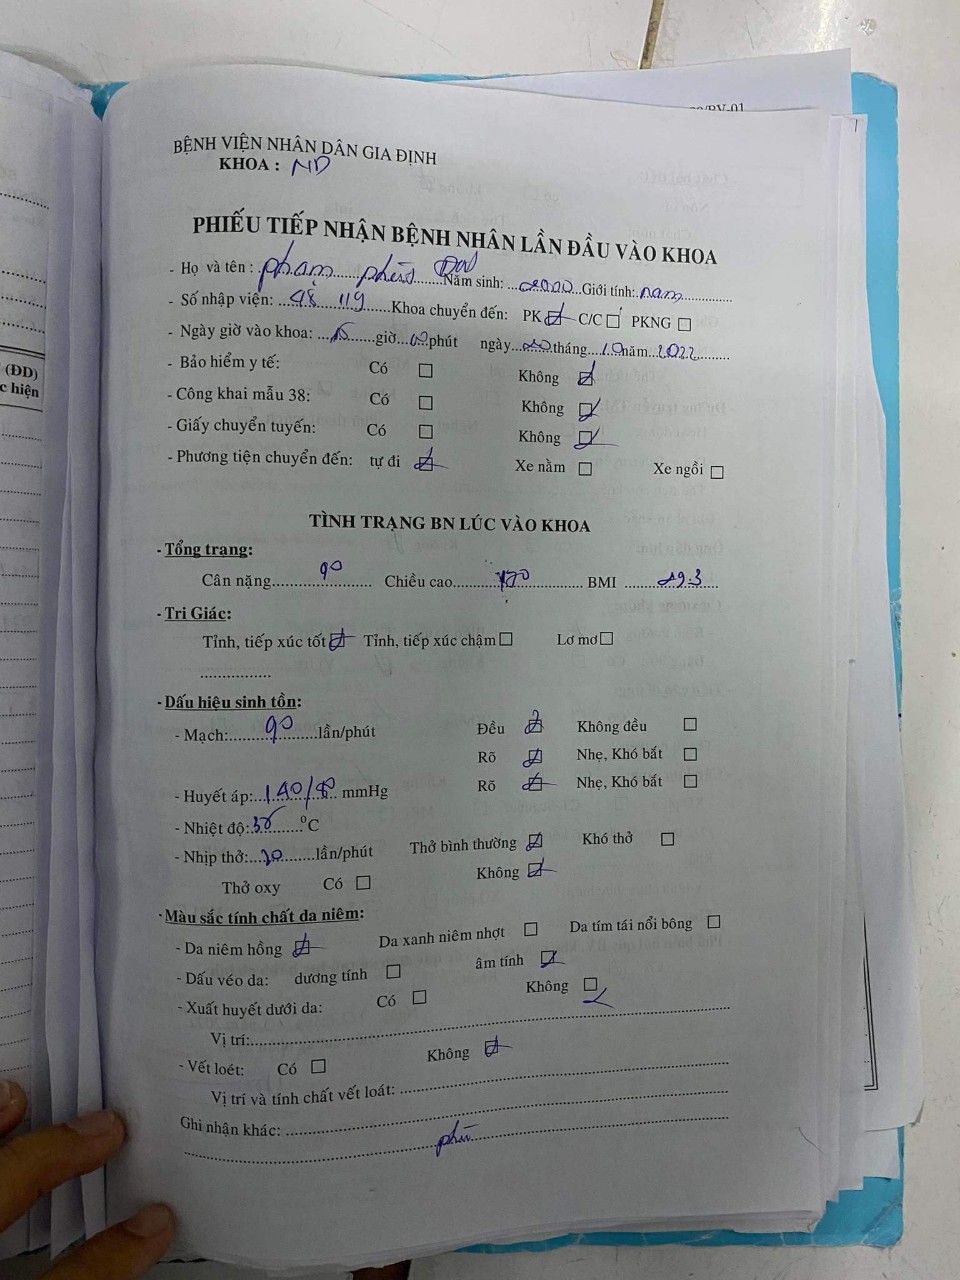 BỆNH VIỆN NHÂN DÂN GIA ĐỊNH
KHOA :
PHIẾU TIẾP NHẬN BỆNH NHÂN LẦN ĐẦU VÀO KHOA
- Họ và tên : phạm Năm sinh: Giới tính: nam
- Số nhập viện: 119 Khoa chuyển đến: PK ☑ C/C ☐ PKNG ☐
- Ngày giờ vào khoa: giờ phút ngày 20 tháng 10 năm 2022
- Bảo hiểm y tế: Có ☐ Không ☑
- Công khai mẫu 38: Có ☐ Không ☑
- Giấy chuyển tuyến: Có ☐ Không ☑
- Phương tiện chuyển đến: tự đi ☑ Xe nằm ☐ Xe ngồi ☐
TÌNH TRẠNG BN LÚC VÀO KHOA
- Tổng trạng:
Cân nặng 90 Chiều cao 170 BMI 29.3
- Tri Giác:
Tỉnh, tiếp xúc tốt ☑ Tỉnh, tiếp xúc chậm ☐ Lơ mơ ☐
- Dấu hiệu sinh tồn:
- Mạch: 90 lần/phút Đều ☑ Không đều ☐
Rõ ☑ Nhẹ, Khó bắt ☐
- Huyết áp: mmHg Rõ ☑ Nhẹ, Khó bắt ☐
- Nhiệt độ: ⁰C
- Nhịp thở: 20 lần/phút Thở bình thường ☑ Khó thở ☐
Thở oxy Có ☐ Không ☑
- Màu sắc tính chất da niêm:
- Da niêm hồng ☑ Da xanh niêm nhợt ☐ Da tím tái nổi bông ☐
- Dấu véo da: dương tính ☐ âm tính ☑
- Xuất huyết dưới da: Có ☐ Không ☑
Vị trí:
- Vết loét: Có ☐ Không ☑
Vị trí và tính chất vết loát:
Ghi nhận khác:
phù
(ĐD)
c hiện